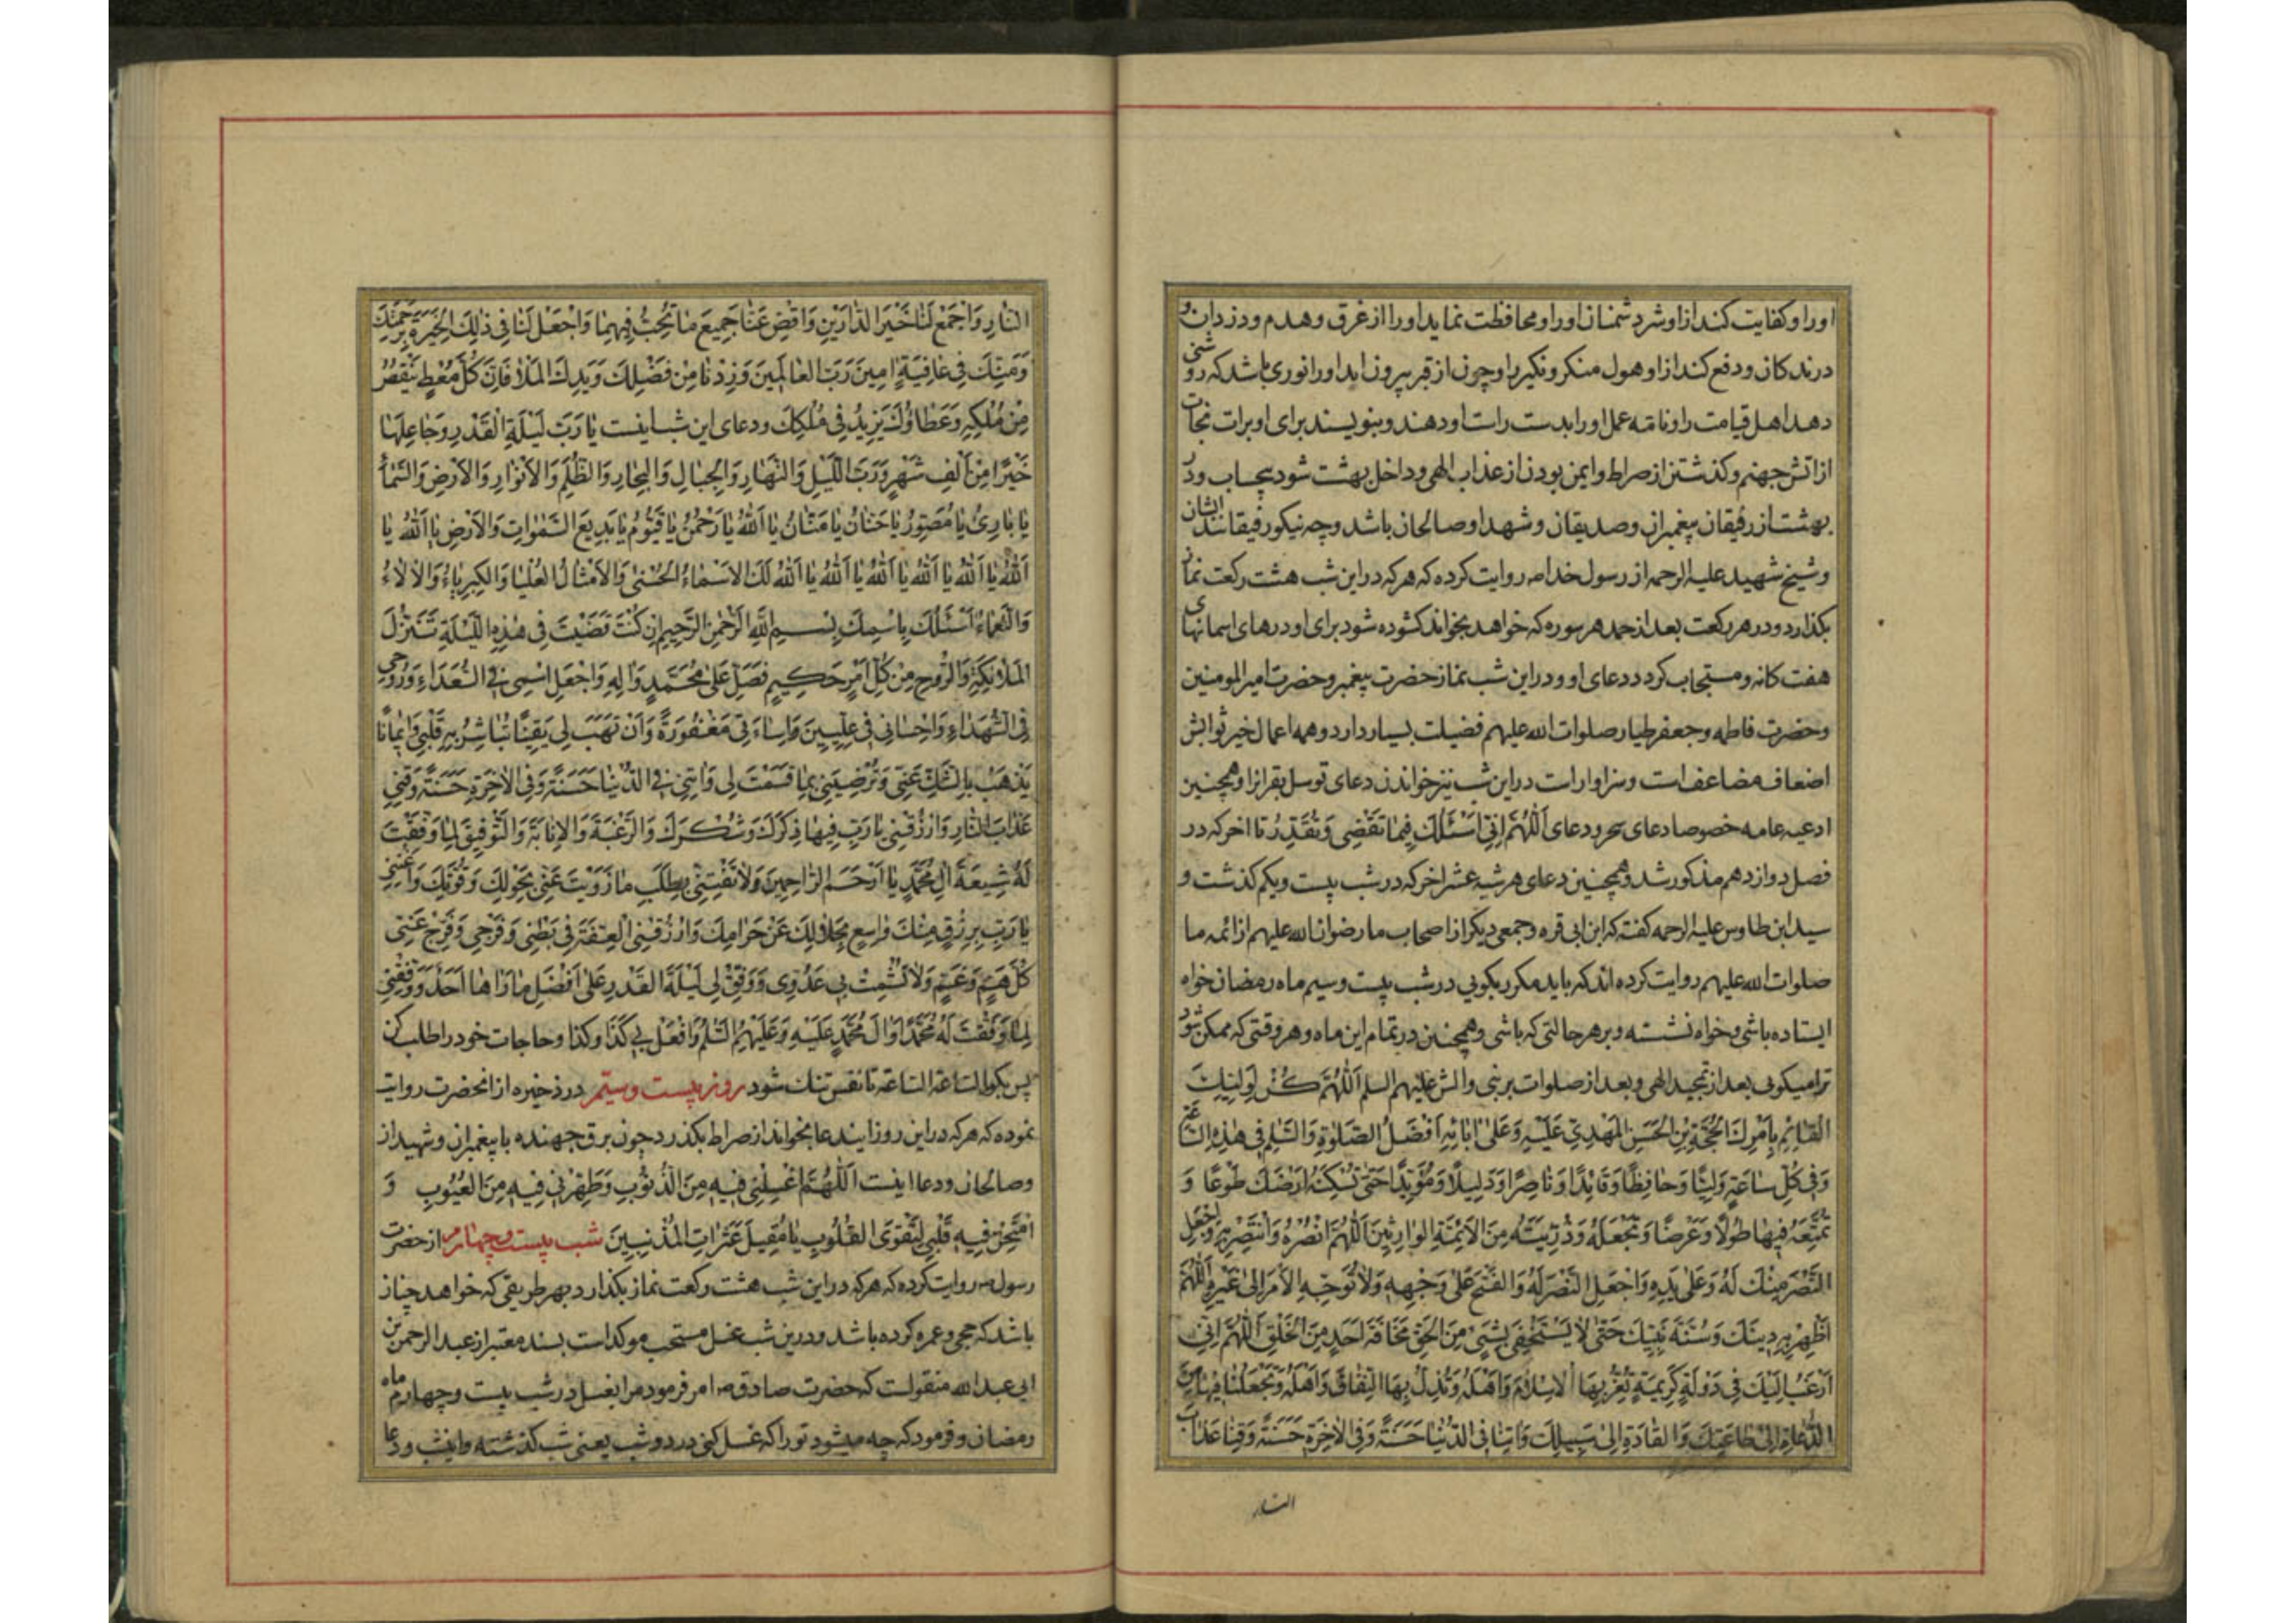 اورا و کفایت کند ازاو شر دشمنان اورا و محافظت نماید اورا از غرق و هدم و دزدان و
درندکان و دفع کند ازاو هول منکر و نکیر را و چون از قبر بیرون اید اورا نوری باشد که روشنی
دهد اهل قیامت را و نامه عمل اورا بدست راست او دهند و بنویسند برای او برات نجات
از اتش جهنم و کذشتن از صراط و ایمن بودن از عذاب الهی و داخل بهشت شود بیحساب و در
بهشت از رفیقان پیغمبران و صدیقان و شهدا و صالحان باشد و چه نیکو رفیقانند ایشان
و شیخ شهید علیه الرحمه از رسول خدا ص روایت کرده که هر که در این شب هشت رکعت نماز
بکذارد و در هر رکعت بعد از حمد هر سوره که خواهد بخواند کشوده شود برای او درهای اسمانهای
هفت کانه و مستجاب کردد دعای او و در این شب نماز حضرت پیغمبر و حضرت امیر المومنین
و حضرت فاطمه و جعفر طیار صلوات الله علیهم فضیلت بسیار دارد و همه اعمال خیر ثوابش
اضعاف مضاعف است و سزاوار است در این شب نیز خواندن دعای توسل بقران را و همچنین
ادعیه عامه خصوصا دعای سحر و دعای اَللّٰهُمَّ اِنّی اَسْئَلُكَ فیما تَقْضی وَتُقَدِّرُ تا اخر که در
فصل دوازدهم مذکور شد و همچنین دعای هر شبه عشر اخر که در شب بیست و یکم کذشت و
سید ابن طاوس علیه الرحمه کفته که ابن ابی قره و جمعی دیکر از اصحاب ما رضوان الله علیهم از ائمه ما
صلوات الله علیهم روایت کرده اند که باید مکرر بکویی در شب بیست و سیم ماه رمضان خواه
ایستاده باشی و خواه نشسته و بر هر حالتی که باشی و همچنین در تمام این ماه و هر وقتی که ممکن شود
ترا میکویی بعد از تمجید الهی و بعد از صلوات بر نبی و الش علیهم السلم اَللّٰهُمَّ كُنْ لِوَلِيِّكَ
الْقائِمِ بِاَمْرِكَ الْحُجَّةِ بْنِ الْحَسَنِ الْمَهْدِيِّ عَلَيْهِ وَعَلىٰ ابائِهِ اَفْضَلُ الصَّلوٰةِ وَالسَّلمِ في هٰذِهِ السّاعَةِ
وَفي كُلِّ ساعَةٍ وَلِيًّا وَحافِظًا وَقائِدًا وَناصِرًا وَدَليلًا وَمُؤَيِّدًا حَتّىٰ تُسْكِنَهُ اَرْضَكَ طَوْعًا وَ
تُمَتِّعَهُ فيها طُولًا وَعَرْضًا وَتَجْعَلَهُ وَذُرِّيَّتَهُ مِنَ الْاَئِمَّةِ الْوارِثينَ اَللّٰهُمَّ انْصُرْهُ وَانْتَصِرْ بِهِ وَاجْعَلِ
النَّصْرَ مِنْكَ لَهُ وَعَلىٰ يَدِهِ وَاجْعَلِ النَّصْرَ لَهُ وَالْفَتْحَ عَلىٰ وَجْهِهِ وَلا تُوَجِّهِ الْاَمْرَ اِلىٰ غَيْرِهِ اَللّٰهُمَّ
اَظْهِرْ بِهِ دينَكَ وَسُنَّةَ نَبِيِّكَ حَتّىٰ لا يَسْتَخْفِيَ بِشَيْءٍ مِنَ الْحَقِّ مَخافَةَ اَحَدٍ مِنَ الْخَلْقِ اَللّٰهُمَّ اِنّي
اَرْغَبُ اِلَيْكَ في دَوْلَةٍ كَريمَةٍ تُعِزُّ بِهَا الْاِسْلامَ وَاَهْلَهُ وَتُذِلُّ بِهَا النِّفاقَ وَاَهْلَهُ وَتَجْعَلُنا فيها مِنَ
الدُّعاةِ اِلىٰ طاعَتِكَ وَالْقادَةِ اِلىٰ سَبيلِكَ وَاتِنا فِي الدُّنْيا حَسَنَةً وَفِي الْاخِرَةِ حَسَنَةً وَقِنا عَذابَ
النار
النّارِ وَاجْمَعْ لَنا خَيْرَ الدّارَيْنِ وَاقْضِ عَنّا جَميعَ ما تُحِبُّ فيهِما وَاجْعَلْ لَنا في ذٰلِكَ الْخِيَرَةَ بِرَحْمَتِكَ
وَمَنِّكَ في عافِيَةٍ امينَ رَبَّ الْعالَمينَ وَزِدْنا مِنْ فَضْلِكَ وَيَدِكَ الْمَلْأ فَاِنَّ كُلَّ مُعْطٍ يَنْقُصُ
مِنْ مُلْكِهِ وَعَطاؤُكَ يَزيدُ في مُلْكِكَ و دعای این شب اینست يا رَبَّ لَيْلَةِ الْقَدْرِ وَجاعِلَها
خَيْرًا مِنْ اَلْفِ شَهْرٍ وَرَبَّ اللَّيْلِ وَالنَّهارِ وَالْجِبالِ وَالْبِحارِ وَالظُّلَمِ وَالْاَنْوارِ وَالْاَرْضِ وَالسَّماءِ
يا بارِئُ يا مُصَوِّرُ يا حَنّانُ يا مَنّانُ يا اَللهُ يا رَحْمٰنُ يا قَيُّومُ يا بَديعَ السَّمٰواتِ وَالْاَرْضِ يا اَللهُ يا
اَللهُ يا اَللهُ يا اَللهُ يا اَللهُ يا اَللهُ يا اَللهُ لَكَ الْاَسْماءُ الْحُسْنىٰ وَالْاَمْثالُ الْعُلْيا وَالْكِبْرِياءُ وَالْالاءُ
وَالنَّعْماءُ اَسْئَلُكَ بِاسْمِكَ بِسْمِ اللهِ الرَّحْمٰنِ الرَّحيمِ اِنْ كُنْتَ قَضَيْتَ في هٰذِهِ اللَّيْلَةِ تَنَزُّلَ
الْمَلائِكَةِ وَالرُّوحِ مِنْ كُلِّ اَمْرٍ حَكيمٍ فَصَلِّ عَلىٰ مُحَمَّدٍ وَالِهِ وَاجْعَلِ اسْمي فِي السُّعَداءِ وَرُوحي
فِي الشُّهَداءِ وَاِحْساني في عِلِّيّينَ وَاِساءَتي مَغْفُورَةً وَاَنْ تَهَبَ لي يَقينًا تُباشِرُ بِهِ قَلْبي وَايمانًا
يَذْهَبُ بِالشَّكِّ عَنّي وَتُرْضِيَني بِما قَسَمْتَ لي وَاتِني فِي الدُّنْيا حَسَنَةً وَفِي الْاخِرَةِ حَسَنَةً وَقِني
عَذابَ النّارِ وَارْزُقْني يا رَبِّ فيها ذِكْرَكَ وَشُكْرَكَ وَالرَّغْبَةَ وَالْاِنابَةَ وَالتَّوْفيقَ لِما وَفَّقْتَ
لَهُ شيعَةَ الِ مُحَمَّدٍ يا اَرْحَمَ الرّاحِمينَ وَلا تَفْتِنّي بِطَلَبِ ما زَوَيْتَ عَنّي بِحَوْلِكَ وَقُوَّتِكَ وَاَغْنِني
يا رَبِّ بِرِزْقٍ مِنْكَ واسِعٍ بِحَلالِكَ عَنْ حَرامِكَ وَارْزُقْنِي الْعِفَّةَ في بَطْني وَفَرْجي وَفَرِّجْ عَنّي
كُلَّ هَمٍّ وَغَمٍّ وَلا تُشْمِتْ بي عَدُوّي وَوَفِّقْ لي لَيْلَةَ الْقَدْرِ عَلىٰ اَفْضَلِ ما رَاٰها اَحَدٌ وَوَفِّقْني
لِما وَفَّقْتَ لَهُ مُحَمَّدًا وَالَ مُحَمَّدٍ عَلَيْهِ وَعَلَيْهِمُ السَّلمُ وَافْعَلْ بي كَذا وَكَذا و حاجات خود را طلب کن
پس بکو الساعة الساعة تا نفس تنك شود روز بیست و سیم در ذخیره از انحضرت روایت
نموده که هر که در این روز ایندعا بخواند از صراط بکذرد چون برق جهنده با پیغمبران و شهیدان
و صالحان و دعا اینست اَللّٰهُمَّ اغْسِلْني فيهِ مِنَ الذُّنُوبِ وَطَهِّرْني فيهِ مِنَ الْعُيُوبِ وَ
امْتَحِنْ فيهِ قَلْبي لِتَقْوَى الْقُلُوبِ يا مُقيلَ عَثَراتِ الْمُذْنِبينَ شب بیست و چهارم از حضرت
رسول ص روایت کرده که هر که در این شب هشت رکعت نماز بکذارد بهر طریقی که خواهد چنان
باشد که حج و عمره کرده باشد و درین شب غسل مستحب موکد است بسند معتبر از عبد الرحمن بن
ابی عبد الله منقولست که حضرت صادق ص امر فرمود مرا بغسل در شب بیست و چهارم ماه
رمضان و فرمود که چه میشود تو را که غسل کنی در دو شب یعنی شب کذشته و اینشب و دعا